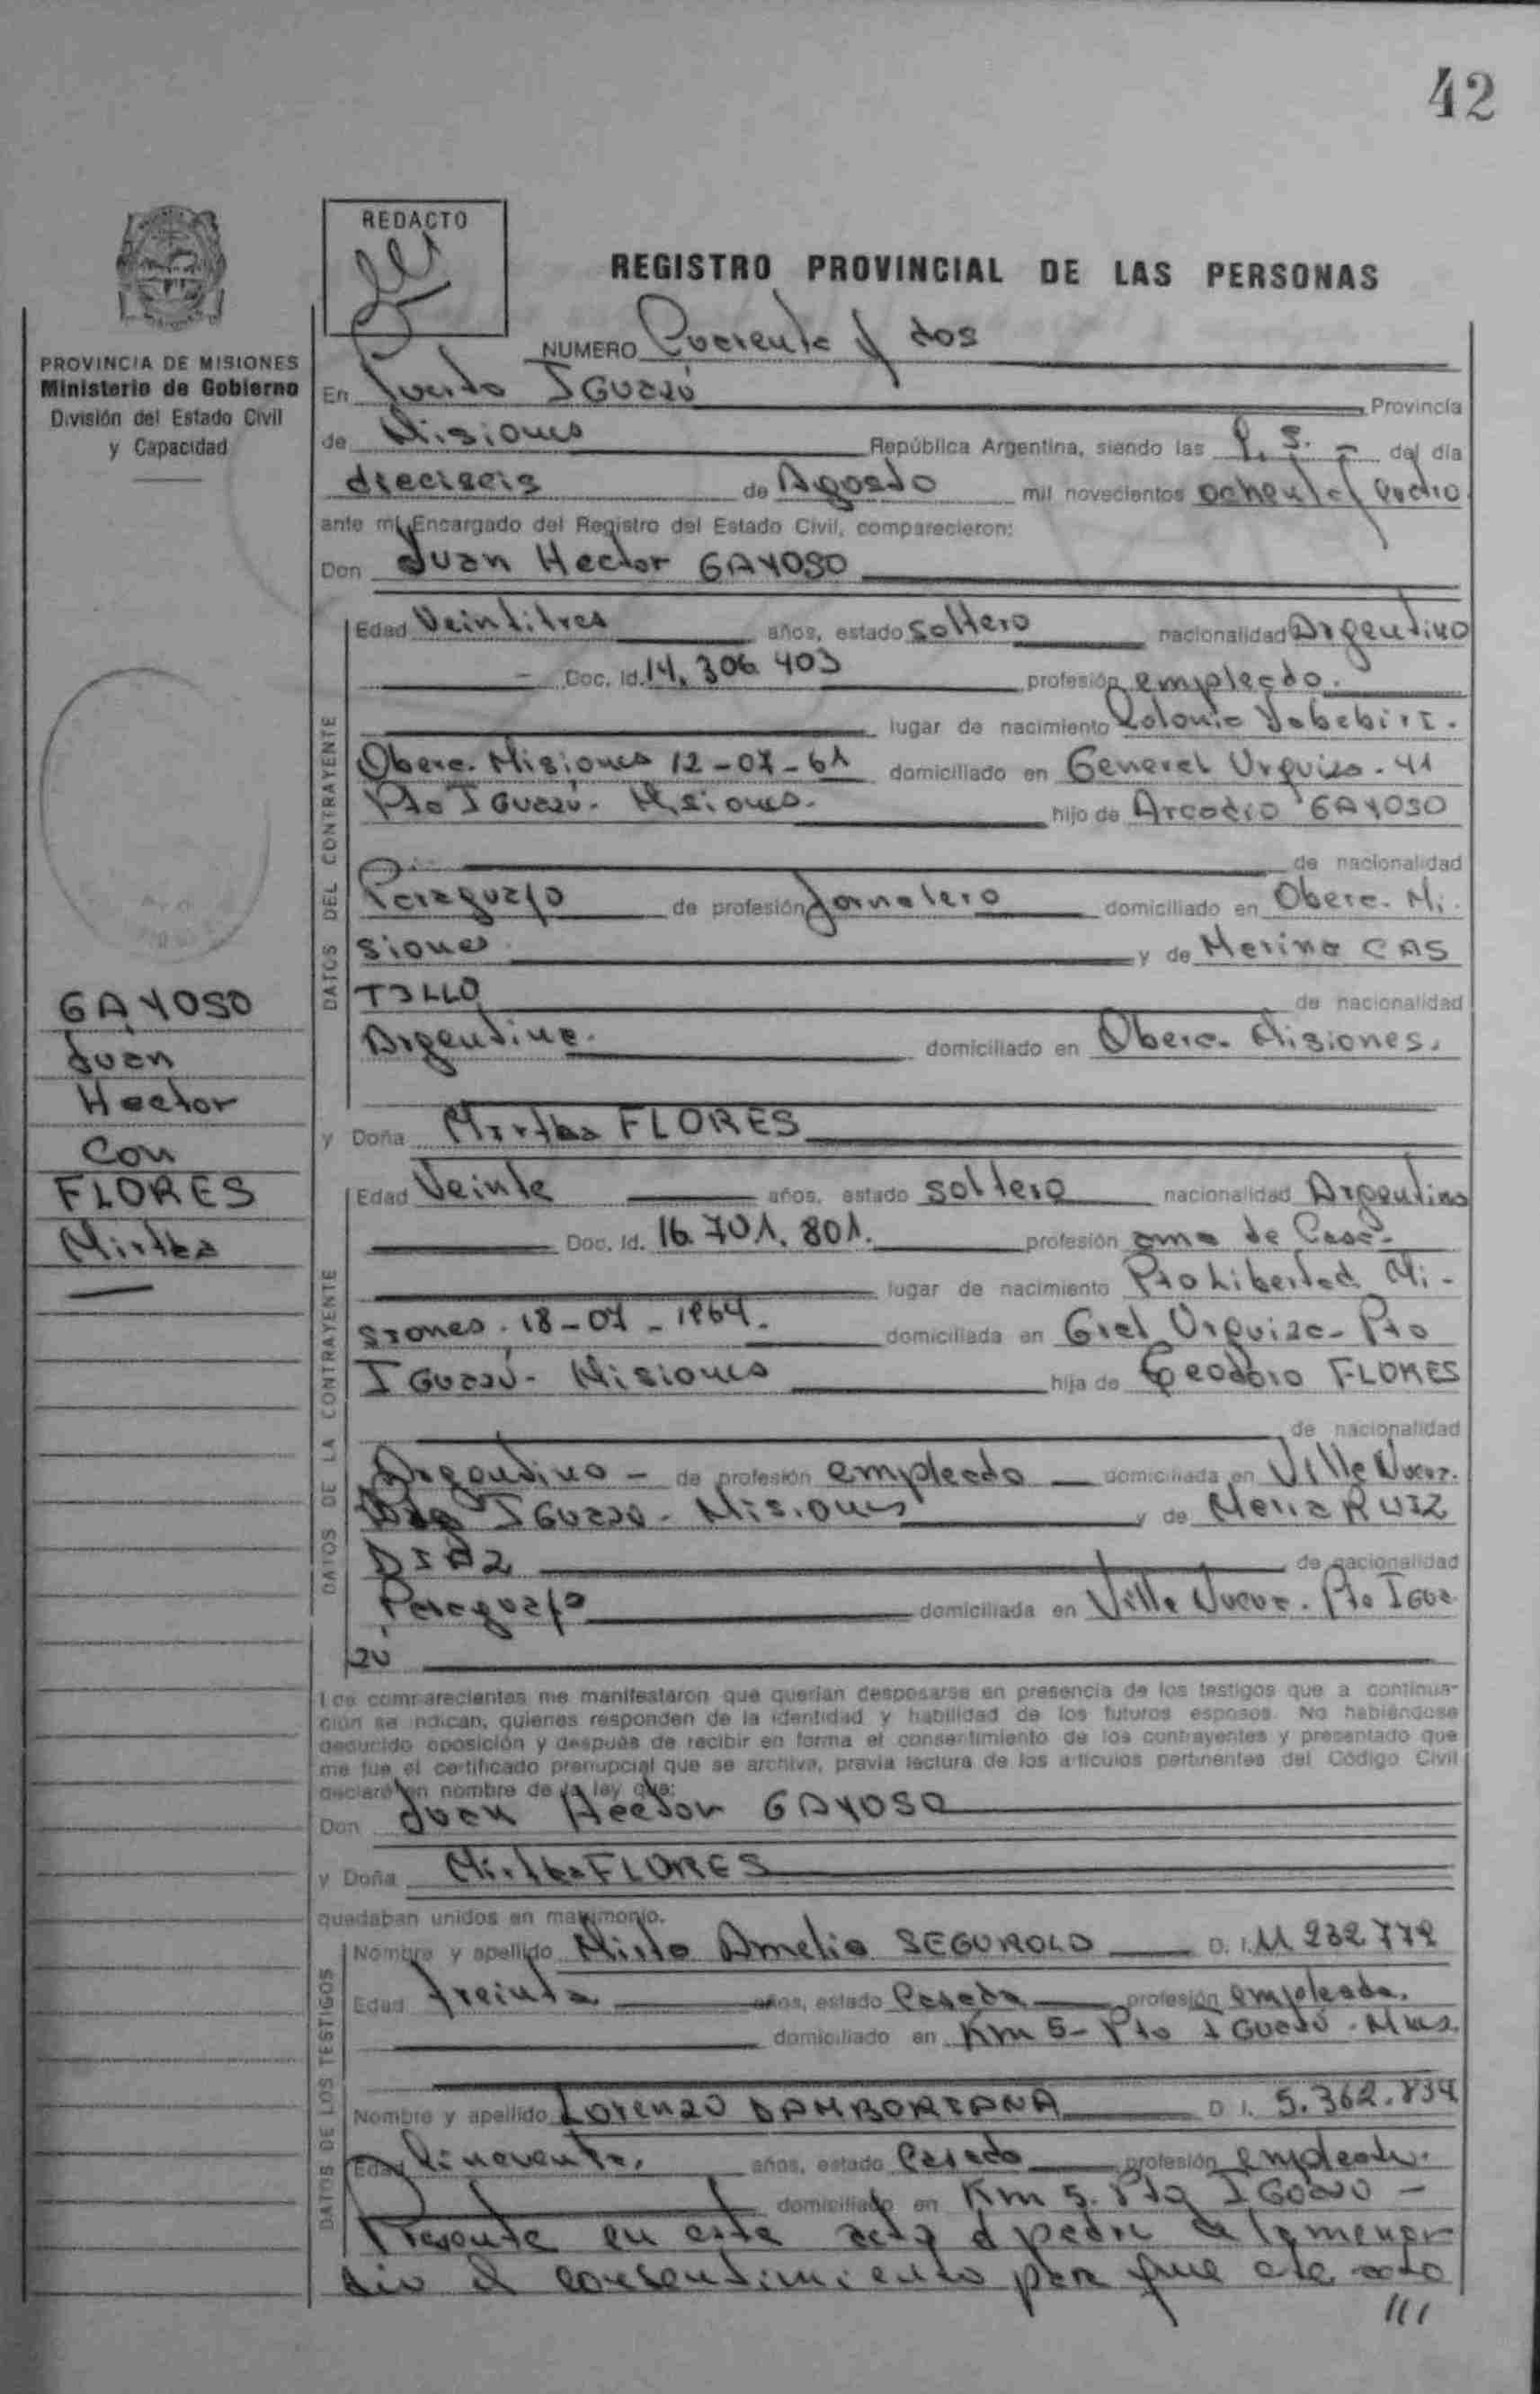 42
REDACTO
REGISTRO PROVINCIAL DE LAS PERSONAS
PROVINCIA DE MISIONES
Ministerio de Gobierno
División del Estado Civil
y Capacidad
NUMERO Cuarenta y dos
En Puerto IGUAZÚ Provincia
de Misiones República Argentina, siendo las del día
dieciseis de Agosto mil novecientos ochenta y cuatro
ante mí, Encargado del Registro del Estado Civil, comparecieron:
Don Juan Hector GAYOSO
Edad Veintitres años, estado soltero nacionalidad Argentino
Doc. Id. 14.306.403 profesión empleado.
lugar de nacimiento Colonia Yabebiri.
Obera. Misiones 12-07-61 domiciliado en General Urquiza. 41
Pto IGUAZÚ. Misiones. hijo de Arcadio GAYOSO
de nacionalidad
Paraguayo de profesión Jornalero domiciliado en Obera. Mi.
siones y de Marina CAS
TILLO de nacionalidad
Argentina. domiciliado en Obera. Misiones.
y Doña Mirtha FLORES
Edad Veinte años, estado soltera nacionalidad Argentina
Doc. Id. 16.701.801. profesión ama de Casa.
lugar de nacimiento Pto Libertad Mi-
siones. 18-07-1964. domiciliada en Gral Urquiza- Pto
IGUAZÚ- Misiones hija de Teodoro FLORES
de nacionalidad
Argentino - de profesión empleado domiciliada en Villa Nueva.
Pto IGUAZU- Misiones y de Maria RUIZ
DIAZ de nacionalidad
Paraguaya domiciliada en Villa Nueva. Pto IGUA
ZÚ
Los comparecientes me manifestaron que querían desposarse en presencia de los testigos que a continua-
ción se indican, quienes responden de la identidad y habilidad de los futuros esposos. No habiéndose
deducido oposición y después de recibir en forma el consentimiento de los contrayentes y presentado que
me fue el certificado prenupcial que se archiva, previa lectura de los artículos pertinentes del Código Civil
declaré en nombre de la ley que:
Don Juan Hector GAYOSO
y Doña Mirtha FLORES
quedaban unidos en matrimonio.
Nombre y apellido Amelia D. I.
Edad treinta años, estado Casada profesión empleada.
domiciliado en Km 5- Pto IGUAZÚ.
Nombre y apellido Lorenzo DAMBORIANA D. I. 5.362.834
Edad Cincuenta. años, estado Casado profesión empleado.
domiciliado en Km 5. Pto IGUAZU -
Presente en este acto el padre de la menor
dio el consentimiento para que este acto
///
DATOS DEL CONTRAYENTE
DATOS DE LA CONTRAYENTE
DATOS DE LOS TESTIGOS
GAYOSO
Juan
Hector
Con
FLORES
Mirtha